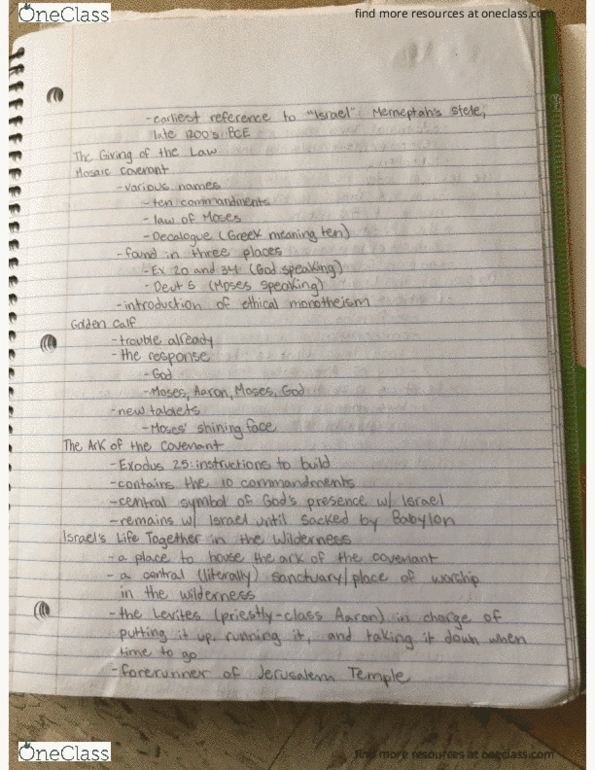 OneClass
find more resources at oneclass.com
-earliest reference to "Israel": Merneptah's stele,
late 1200's BCE
The Giving of the Law
Mosaic covenant
-various names
-ten commandments
-law of Moses
-Decalogue (Greek meaning ten)
-found in three places
-Ex 20 and 34 (God speaking)
-Deut 5 (Moses speaking)
-introduction of ethical monotheism
Golden Calf
-trouble already
-the response
-God
-Moses, Aaron, Moses, God
-new tablets
-Moses' shining face
The Ark of the Covenant
-Exodus 25: instructions to build
-contains the 10 commandments
-central symbol of God's presence w/ Israel
-remains w/ Israel until sacked by Babylon
Israel's Life Together in the Wilderness
-a place to house the ark of the covenant
-a central (literally) sanctuary/place of worship
in the wilderness
-the Levites (priestly-class Aaron) in charge of
putting it up, running it, and taking it down when
time to go
-forerunner of Jerusalem Temple
OneClass
find more resources at oneclass.com